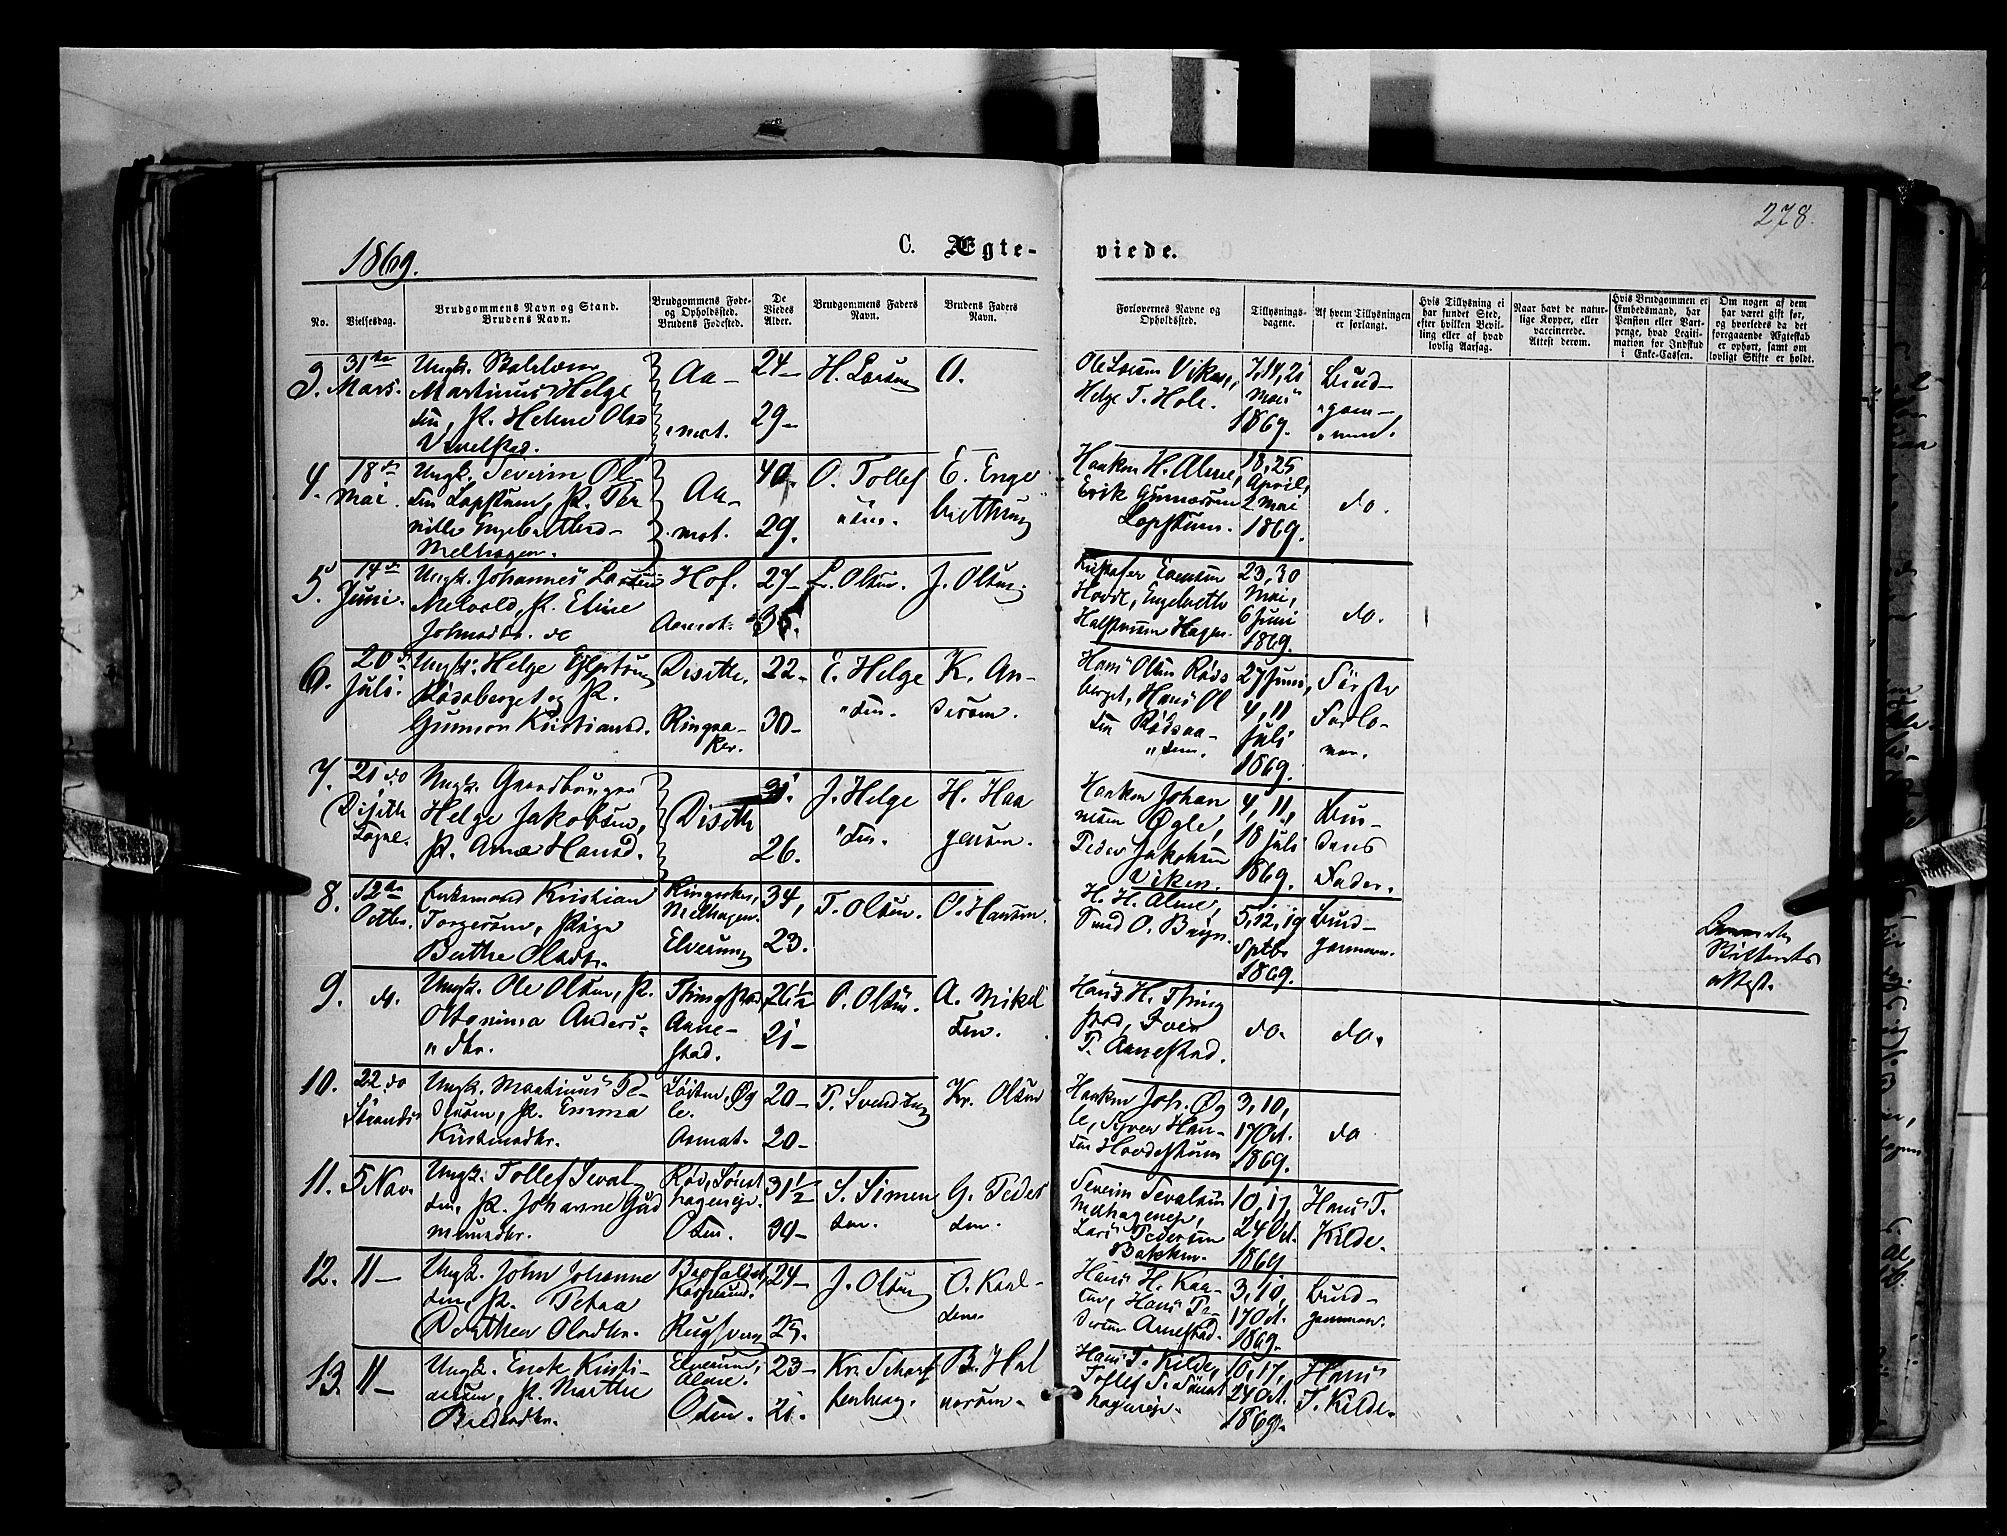 278.
1869.
C. Ægte- viede.
No.
Vielsesdag.
Brudgommens Navn og Stand.
Brudens Navn.
Brudgommens Føde-
og Opholdssted.
Brudens Fødested.
De
Viedes
Alder.
Brudgommens Faders
Navn.
Brudens Faders
Navn.
Forlovernes Navne og
Opholdssted.
Tillysnings-
dagene.
Af hvem Tillysningen
er forlangt.
Hvis Tillysning ei
har fundet Sted,
efter hvilken Bevil-
ling eller af hvad
lovlig Aarsag.
Naar havt de natur-
lige Kopper, eller
vaccinerede.
Attest derom.
Hvis Brudgommen er
Embedsmand, har
Pension eller Vart-
penge, hvad Legiti-
mation for Indskud
i Enke-Cassen.
Om nogen af dem
har været gift før,
og hvorledes da det
foregaaende Ægteskab
er ophørt, samt om
lovligt Skifte er holdt.
3. 31te Mars.
Ungk.
Martinus Helge
sen, P. Helene Olsd
Aa-
mot.
24-
29-
H. Larsen
O.
Ole Larsen Viken,
Helge T. Hole.
7, 14, 21
Mars
1869.
Brud-
gom-
men.
4. 18de Mai.
Ungk. Severin Ol
sen Løpstuen, P. Per
nille Engebrethsd-
Melhagen.
Aa-
mot.
40.
29.
O. Tollef
sen.
E. Enge
brethsen
Haaken H. Alme,
Erik Gunnarsen
Løpstuen.
18, 25
April,
2 Mai
1869.
do.
5. 14de Juni.
Ungk. Johannes Larsen
Melvold, P. Eline
Johnsdtr. de
Hof.
Aamot.
27-
35.
L. Olsen.
J. Olsen.
Kristofer Evensen
Hovde, Engebreth
Halstensen Hagen.
23, 30
Mai,
6 Juni
1869.
do.
6. 20de Juli.
Ungk. Helge
Rødsberget og P.
Gunnor Kristiansd.
Diseth.
Ringsa-
ker.
22-
30-
E. Helge
sen.
K. An-
dersen.
Hans Olsen Røds
berget, Hans Ol
sen Rødsaa-
sen.
27 Juni,
4, 11
Juli
1869.
Første
Forlo-
ver.
7. 21 do
Diseth
Sogne.
Ungk. Gaardbruger
Helge Jakobsen,
P. Anne Hansd.
Diseth
31.
26.
J. Helge
sen.
H. Haa
gensen.
Haaken Johan
nesen Øgle,
Peder Jakobsen
Viken.
4, 11,
18 Juli
1869.
Bru-
dens
Fader.
8. 12te Octbr.
Enkemand Kristian
Torgersen, Pige
Berthe Olsdtr.
Ringsaker,
Melhagen.
Elverum
34,
23.
T. Olsen.
O. Hansen.
H. H. Alme,
O. Bryn.
5, 12, 19
Sptbr
1869.
Brud-
gommen.
Skifterets
attest.
9. do.
Ungk. Ole Olsen, P.
Oltonima Anders-
dtr.
Thingstad
Arne-
stad.
26½
21-
O. Olsen.
A. Mikel
sen.
Hans H. Thing
stad, Iver
T. Arnestad.
do.
do.
10. 22 do
Strands
Ungk. Martinus Pe-
dersen, P. Emma
Kristensdtr.
Løiten, Øg
le.
Aamot.
20-
20-
P. Svendsen
Kr. Olsen
Haaken Joh. Øg
le, Syver Han-
sen Hovdestuen
3, 10,
17 Oct.
1869.
do
11. 5 Nov.
Ungk. Tollef Seval
sen, P. Johanne Gud
mundsdtr.
Osen.
31½
34-
S. Simen
sen.
G. Peder
sen.
Severin Sevalsen
Melhageneje,
Lars Pedersen
Bakken.
10, 17,
24 Oct.
1869
Hans T.
Kilde.
12. 11-
Ungk. John Johanne
sen, P. Petra
Dorthea Olsdtr.
24-
29.
J. Olsen
O. Karl-
sen.
Hans H. Kaa-
sen, Hans Pe-
dersen Arnestad.
3, 10,
17 Oct.
1869.
Brud-
gommen.
13. 11-
Ungk. Enok Kristi-
ansen, P. Marthe
Elverum,
Alme.
Osen.
23-
21.
Kr. Scharf
fenberg.
B. Hal
vorsen.
Hans T. Kilde,
Tollef S.
10, 17,
24 Oct.
1869.
Hans
T. Kilde.